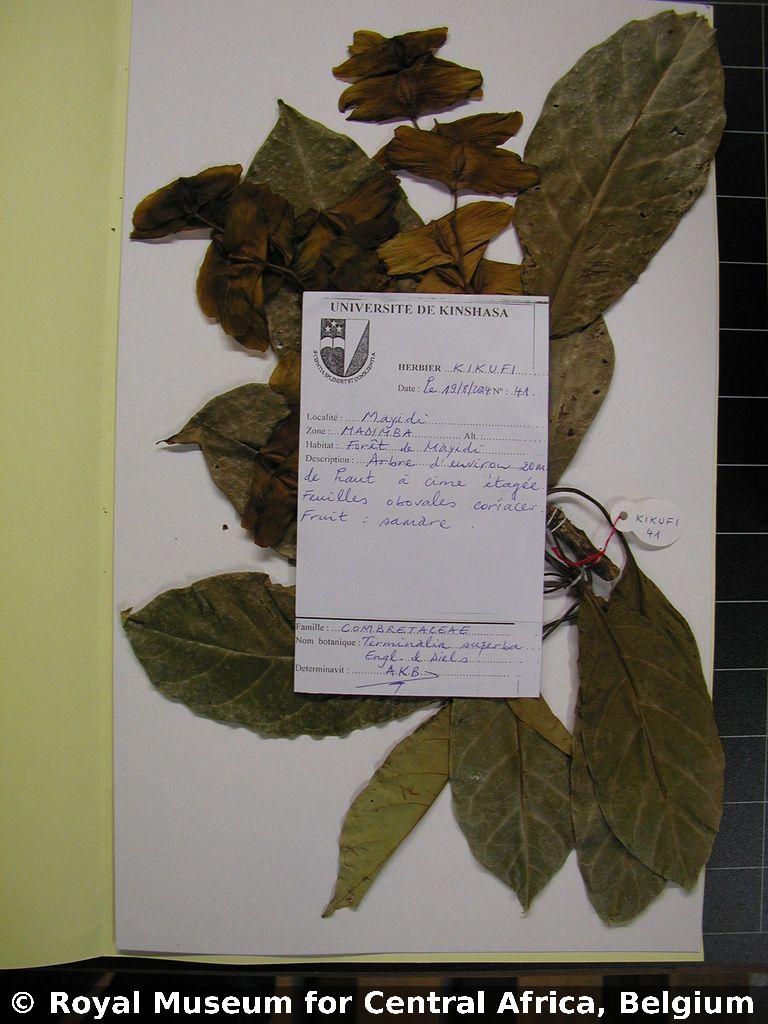 UNIVERSITE DE KINSHASA
SCIENTIA SPLENDET ET CONSCIENTIA
HERBIER ...K.I.K.U.F.I...
Date : le 19/8/2004 N° : 41
Localité : ...... Mayidi
Zone : ... MADIMBA ... Alt. : ......
Habitat : ... Forêt de Mayidi
Description : ... Arbre d'environ 20m
de haut à cime étagée.
Feuilles obovales coriaces.
Fruit : samare.
Famille : ... COMBRETACEAE
Nom botanique : Terminalia superba
Engl. & Diels
Determinavit : ...... A.K.B.
KIKUFI
41
© Royal Museum for Central Africa, Belgium